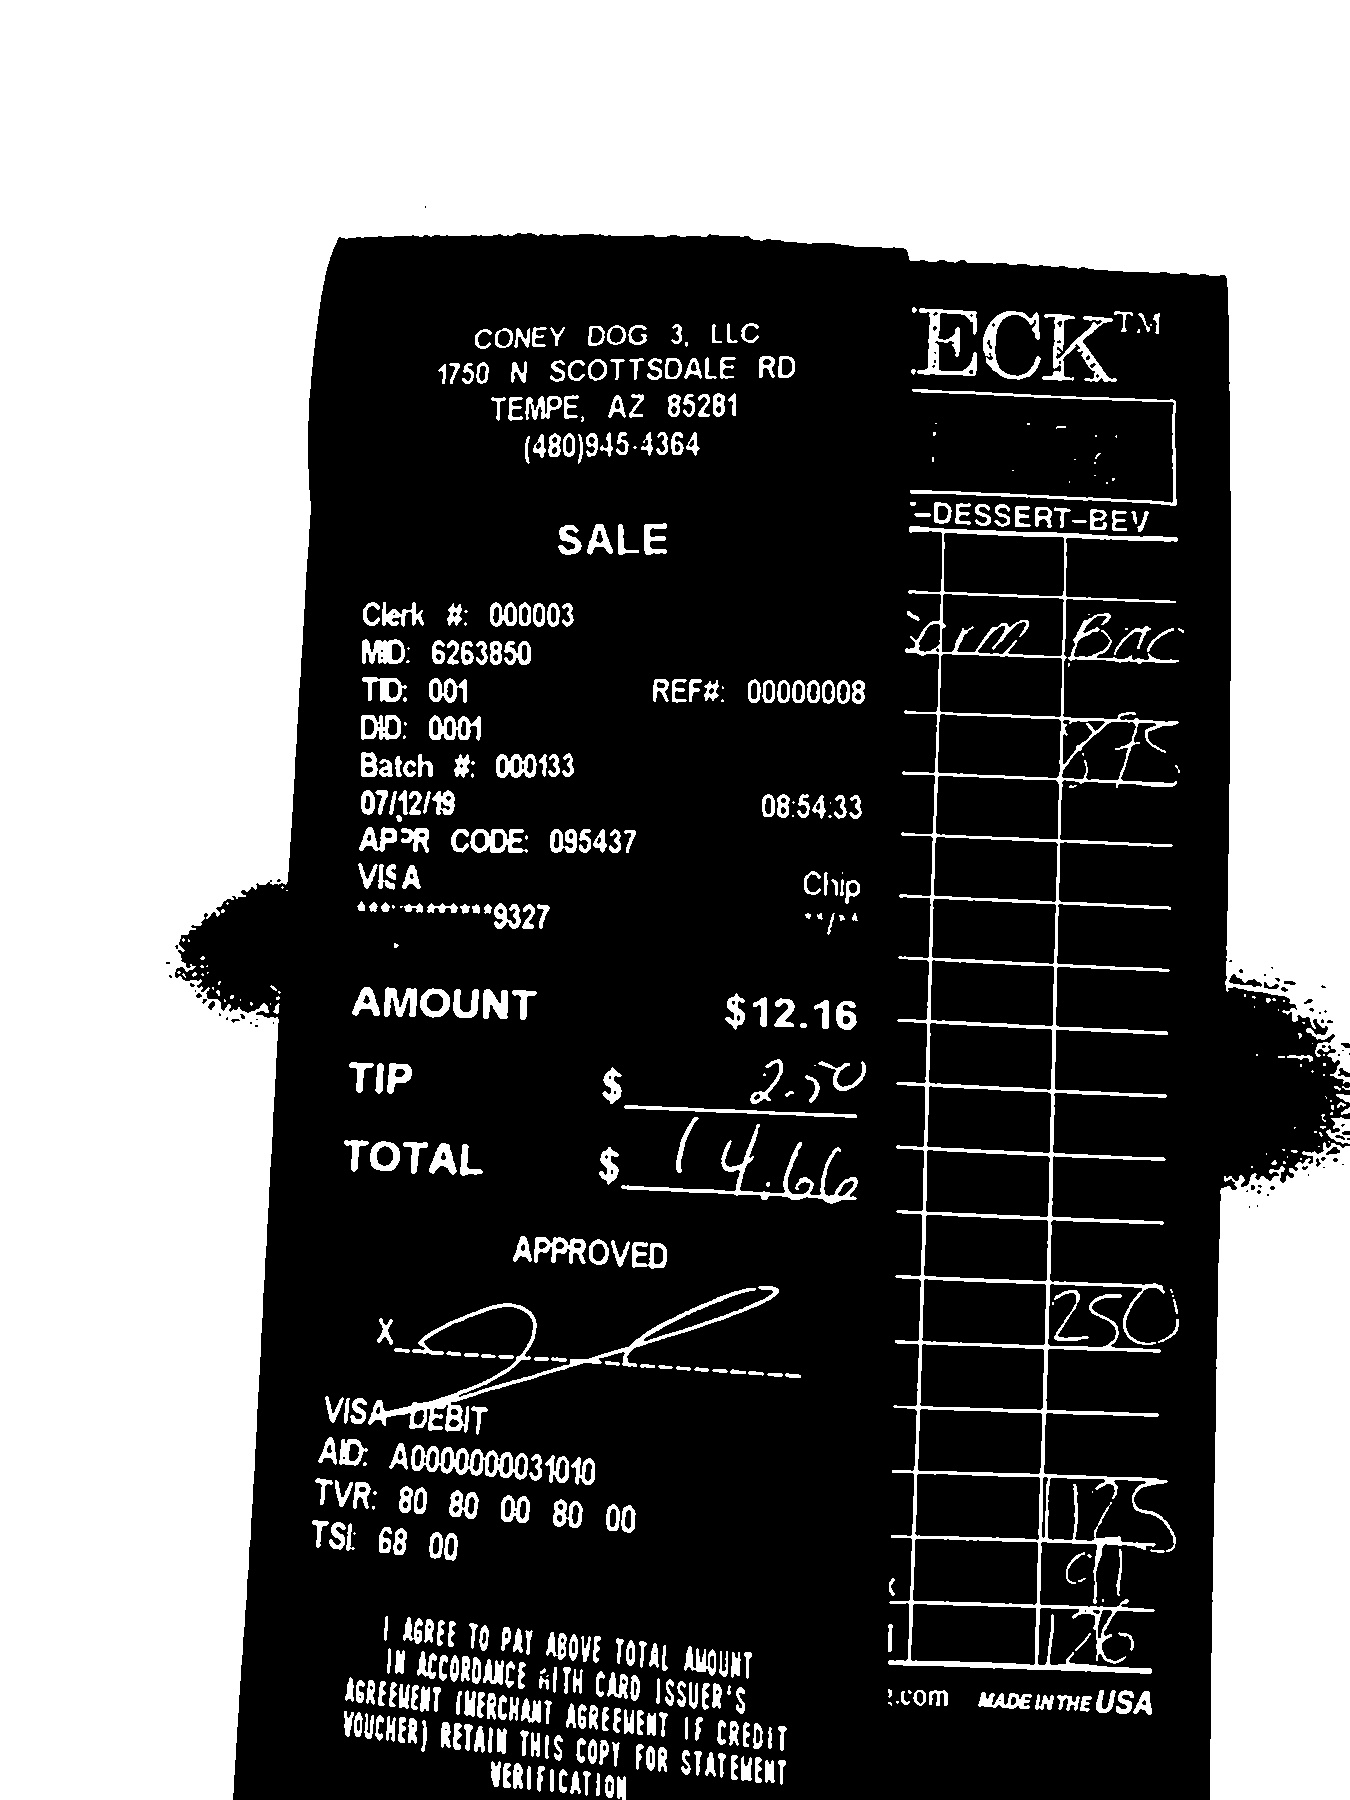 CONEY DOG 3, LLC
1750 N SCOTTSDALE RD
TEMPE, AZ 85281
(480)945-4364
SALE
Clerk #: 000003
MID: 6263850
TID: 001 REF#: 00000008
DID: 0001
Batch #: 000133
07/12/19 08:54:33
APPR CODE: 095437
VISA Chip
************9327 **/**
AMOUNT $12.16
TIP $ 2.50
TOTAL $ 14.66
APPROVED
X
VISA DEBIT
AID: A0000000031010
TVR: 80 80 00 80 00
TSI: 68 00
I AGREE TO PAY ABOVE TOTAL AMOUNT
IN ACCORDANCE WITH CARD ISSUER'S
AGREEMENT (MERCHANT AGREEMENT IF CREDIT
VOUCHER) RETAIN THIS COPY FOR STATEMENT
VERIFICATION
ECK™
-DESSERT-BEV
Bac
875
250
125
91
126
.com MADE IN THE USA